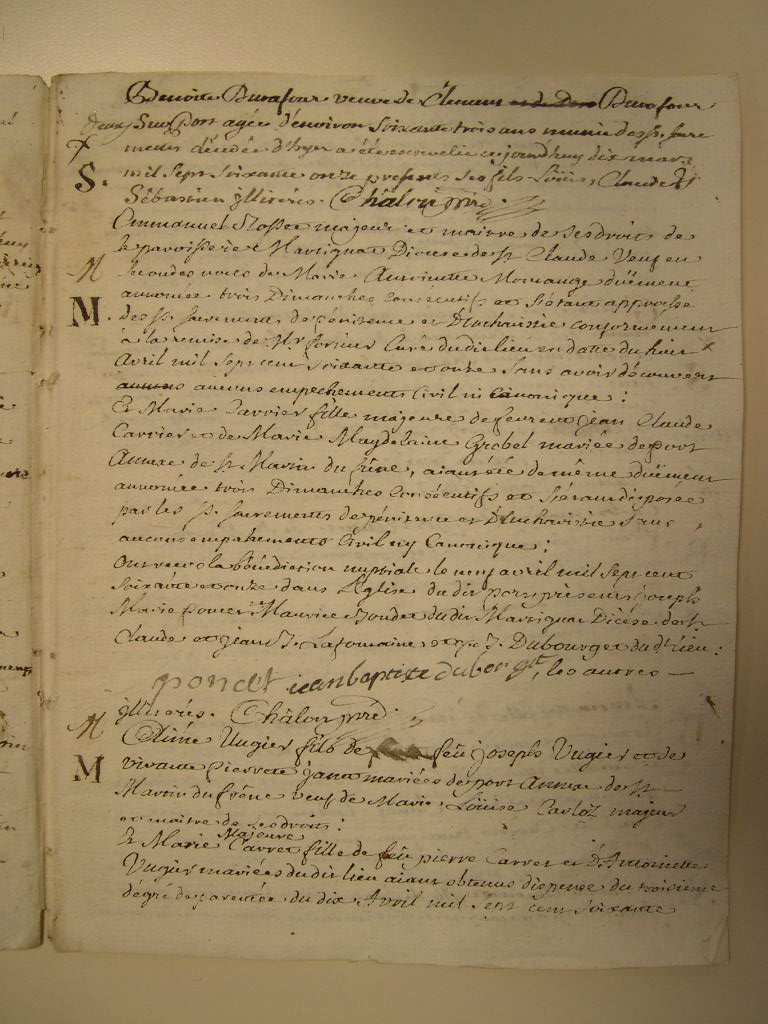 Benoite Durafour veuve de Clement Durafour
Sur port agée d'environ Soixante trois ans munie des st. sacre
ments decedée d'hyer a été ensevelie aujourdhuy dix mars
S.
mil Sept Soixante onze presents ses fils Loüis, Claude &
Sébastien illiterés. Châlon
Emmanuel majeur et maitre de ses droits de
la paroisse de Martignat Diocese de St Claude Veuf en
secondes noces de Marie Antoinette düement
M
annoncée trois Dimanches consecutifs et s'etant approché
M.
des st. sacrements de pénitence et d'Eucharistie conformement
à la remise de Mr Curé du dit lieu en datte du huit
Avril mil sept cent soixante et onze sans avoir découvert
aucuns empechements Civil ni Canonique:
Et Marie Carrier fille majeure de feu jean Claude
Carrier et de Marie Magdelaine Grobel mariés de port
Annexe de St. Martin du frêne, aiant été de même düement
annoncée trois Dimanches Consécutifs et s'étant disposée
par les st. sacrements de pénitence et d'Eucharistie sans
aucuns empechements Civil ny Canonique:
Ont reçu la bénédiction nuptiale le neuf avril mil sept cent
soixante et onze dans l'Eglise du dit port présents joseph
Marie poncet Maurice du dit Martignat Diocése de St
Claude et jean B. Lafontaine et j. B. Dubourget du dt Lieu:
poncet jean baptiste dubourget, les autres
illiterés. Châlon
M
Aimé Vugier fils de feû joseph Vugier et de
M
vivante pierrete mariés de port Annexe de St
Martin du frêne veuf de Marie Loüise Carloz majeur
et maitre de ses droits:
Majeure
Et Marie Carret fille de feu pierre Carret et d'Antoinette
Vugier mariés du dit lieu aiant obtenus dispense du troisieme
dégré de parentée du dix Avril mil sept cent soixante